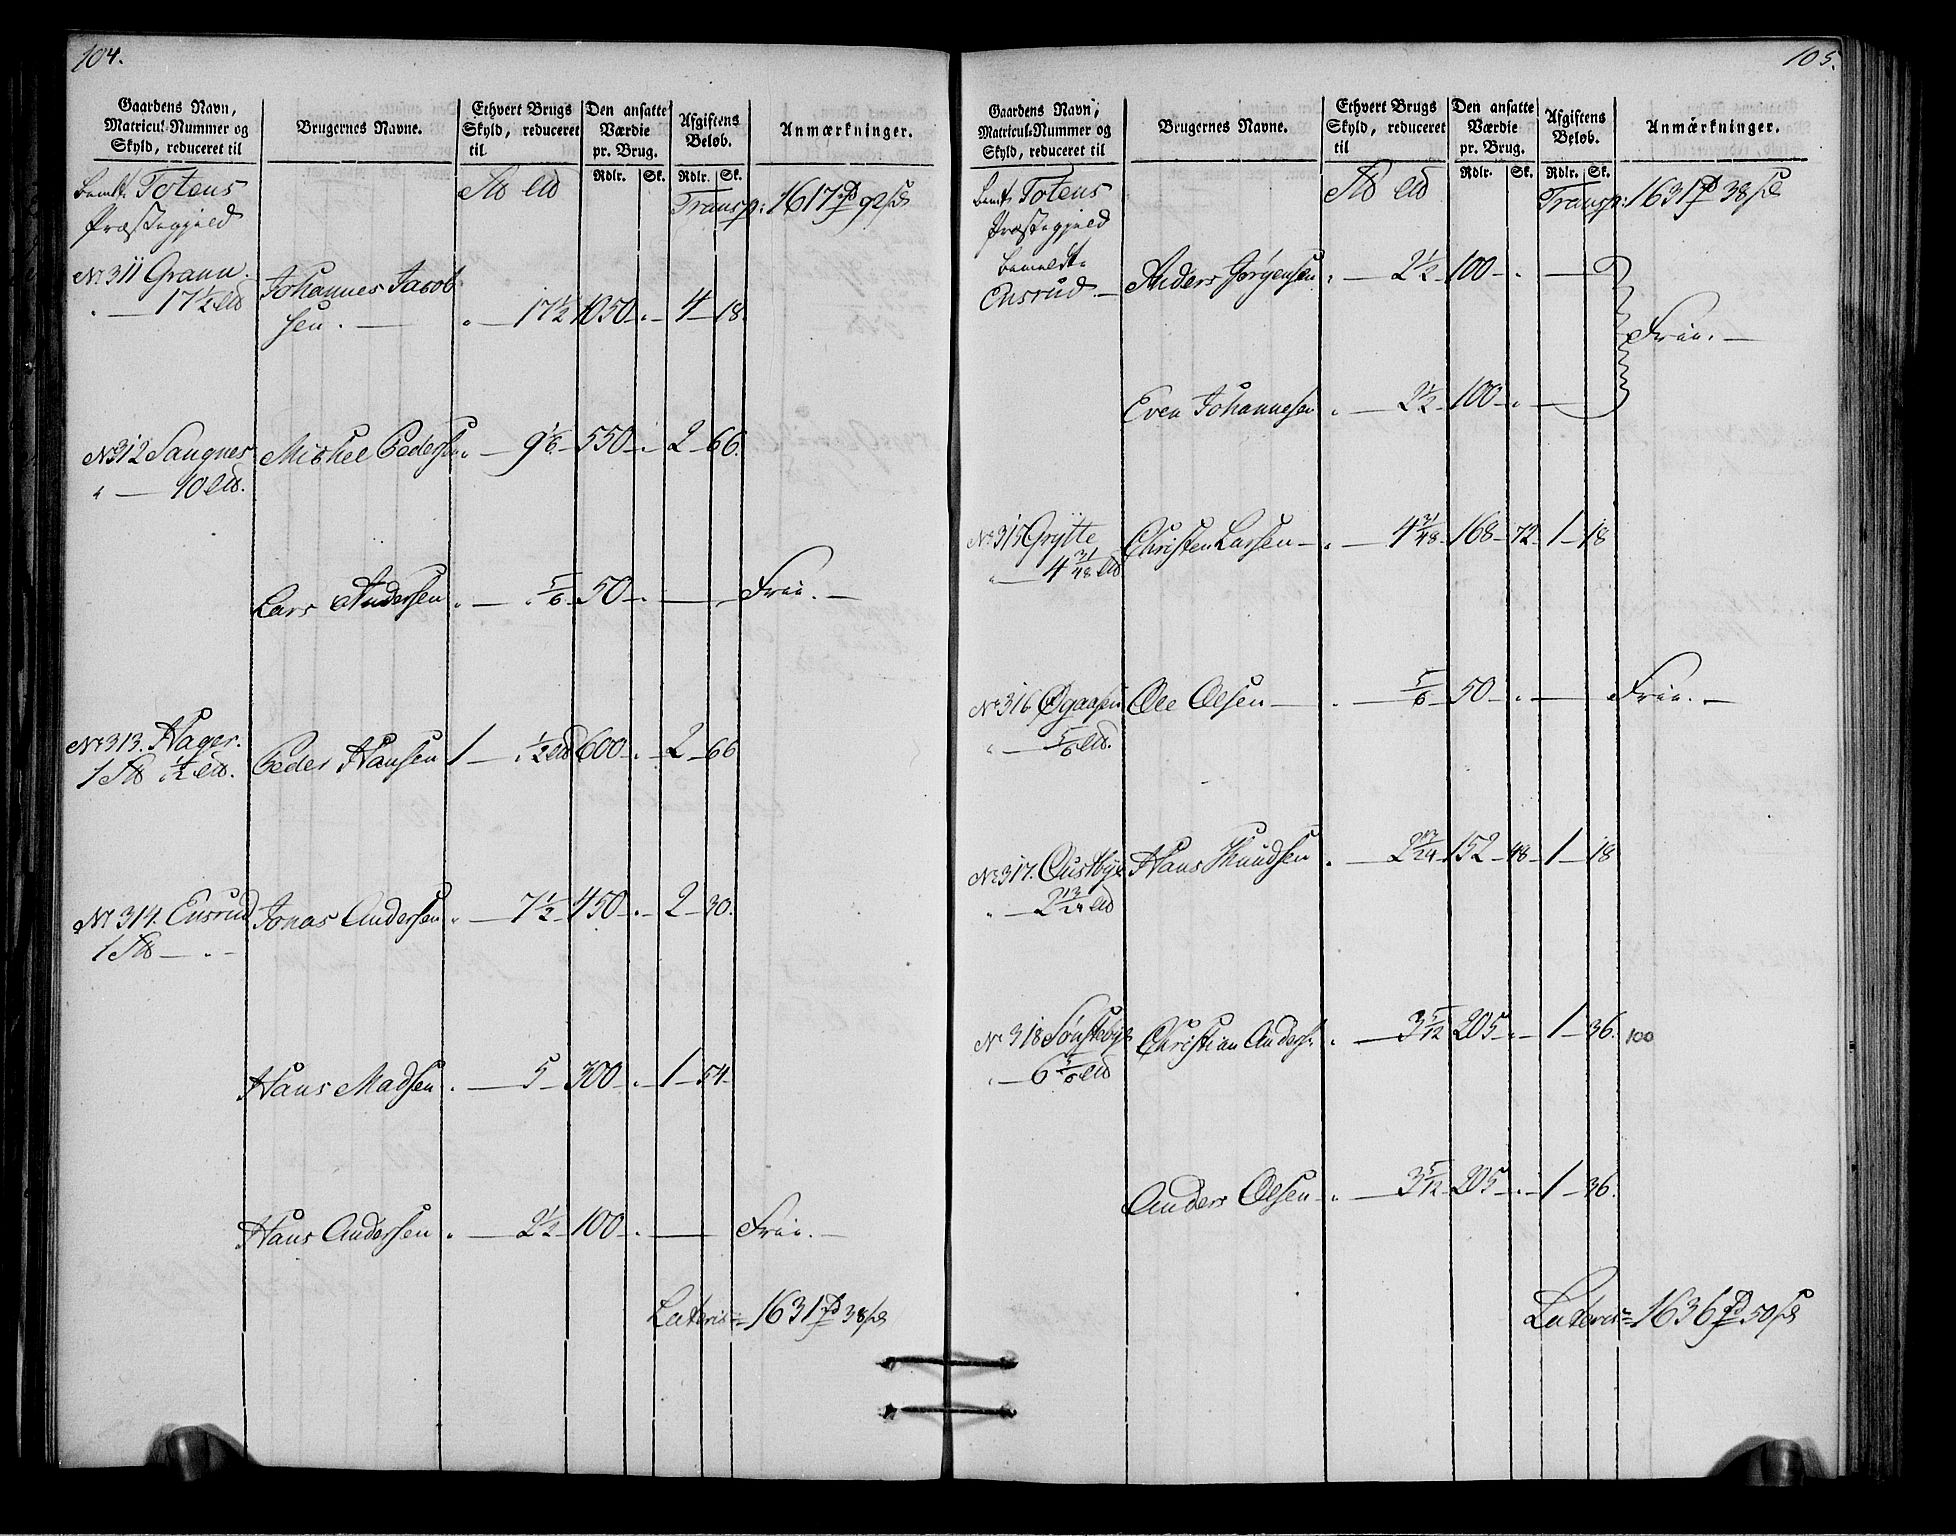 104.
Gaardens Navn, Matricul-Nummer og Skyld, reduceret til | Brugernes Navne. | Ethvert Brugs Skyld, reduceret til | Den ansatte Værdie pr. Brug. Rdlr. Sk. | Afgiftens Beløb. Rdlr. Sk. | Anmærkninger.
bemte Totens
Præstegjeld
Transp: 1617 92
No 311 Grann.
17½
Johannes Jacob
sen. — 17½ 1050 — 4 — 18.
No 312 Sangnes Mickel Pedersen — 9 1/6 — 550 — 2 — 66.
10
Lars Andersen — 5/6 — 50 — Frie. —
No 313. Hager. Peder Hansen 1 — ½ 600 — 2 — 66
1 ½
No 314. Ensrud Jonas Andersen — 7½ — 450 — 2 — 30.
1
Hans Madsen — 5 — 300 — 1 — 54.
Hans Andersen — 2½ — 100 — Frie. —
Lateris = 1631 38
105.
Gaardens Navn, Matricul-Nummer og Skyld, reduceret til | Brugernes Navne. | Ethvert Brugs Skyld, reduceret til | Den ansatte Værdie pr. Brug. Rdlr. Sk. | Afgiftens Beløb. Rdlr. Sk. | Anmærkninger.
bemte Totens
Præstegjeld
Transp: 1631 38
bemeldte
Ensrud — Anders Jørgensen — 2½ 100 —
Frie. —
Even Johannesen — 2½ 100 —
No 315 Grÿtte Christen Larsen — 4 31/48 168 — 72 — 1 — 18
4 31/48
No 316. Øgaasen Ole Olsen — 5/6 — 50 — Frie. —
5/6
No 317. Oustbye Hans Knudsen — 2 13/24 152 — 48 — 1 — 18
2 13/24
No 318 Christian Anders: — 3 5/12 205 — 1 — 36. 100
6 5/6
Anders Olsen — 3 5/12 205 — 1 — 36.
Lateris = 1636 50